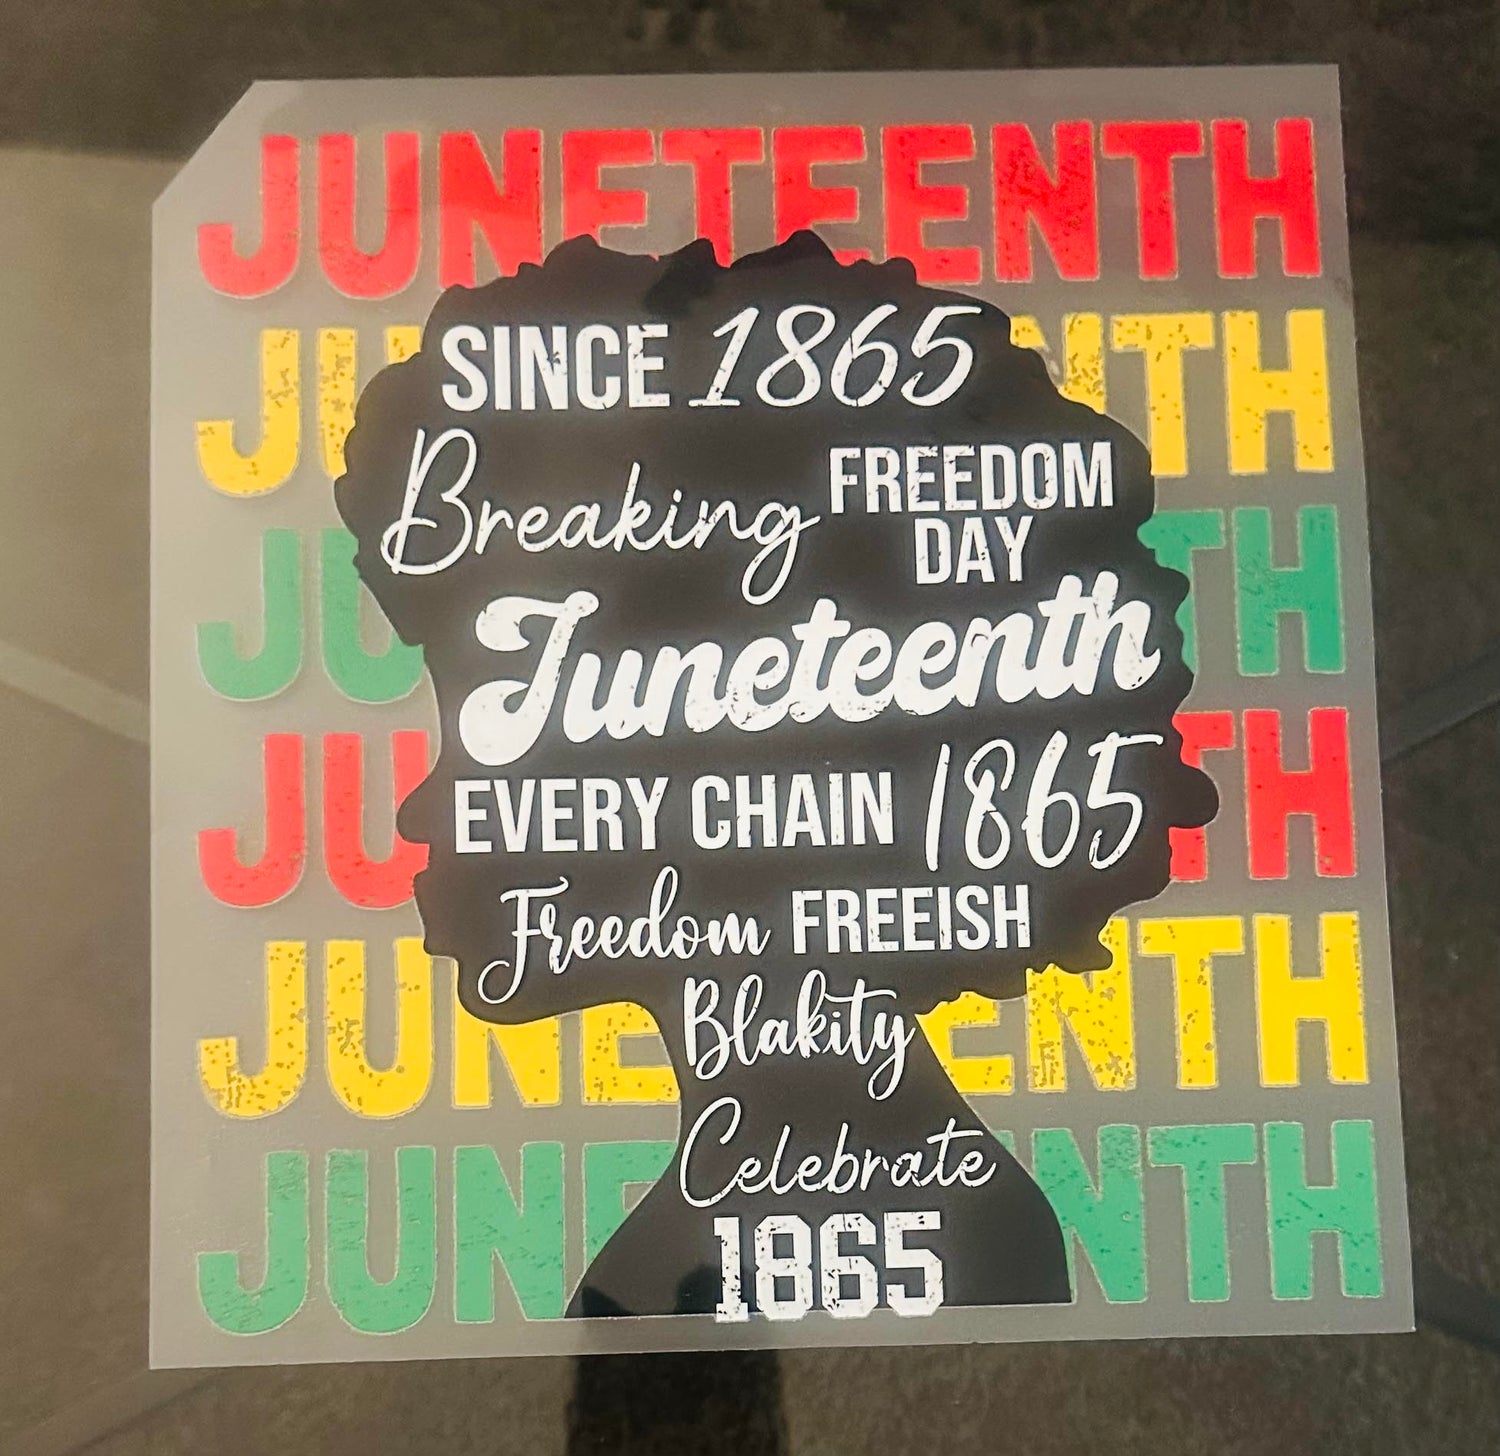 JUNETEENTH
SINCE 1865
JU NTH
Breaking FREEDOM
DAY
JU TH
Juneteenth
JU TH
EVERY CHAIN 1865
Freedom FREEISH
JUNE ENTH
Blakity
Celebrate
JUNE NTH
1865